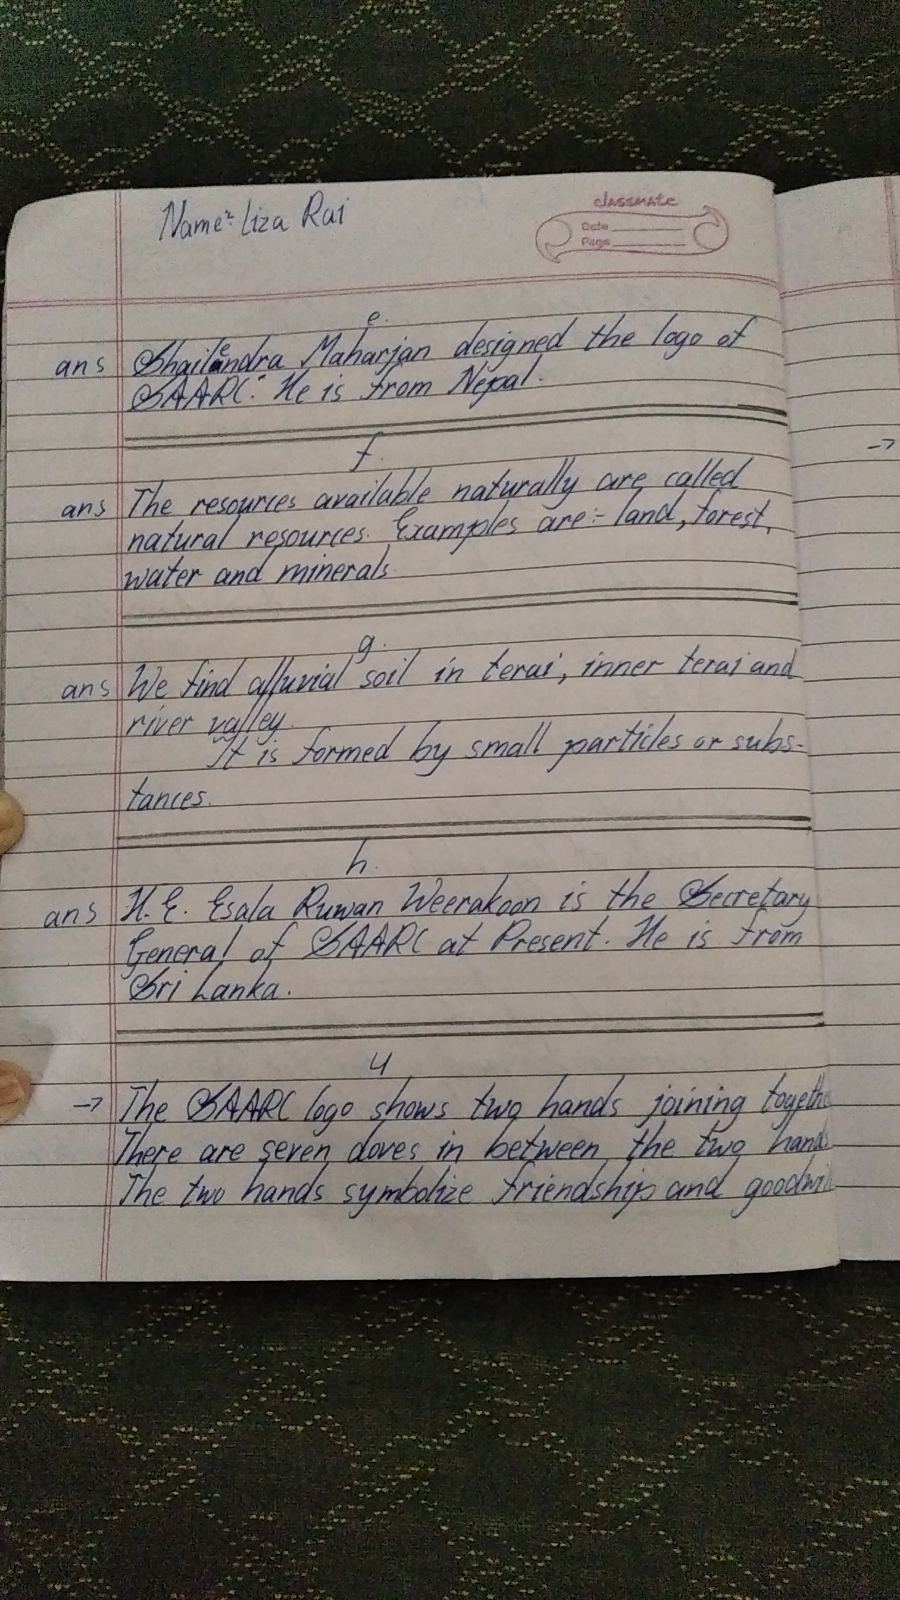 Name:- Liza Rai
classmate
Date
Page
e.
ans Shailendra Maharjan designed the logo of
SAARC. He is from Nepal.
f.
ans The resources available naturally are called
natural resources. Examples are:- land, forest,
water and minerals.
g.
ans We find alluvial soil in terai, inner terai and
river valley.
It is formed by small particles or subs-
tances.
h.
ans H.E. Esala Ruwan Weerakoon is the Secretary
General of SAARC at Present. He is from
Sri Lanka.
4
→ The SAARC logo shows two hands joining togethe
There are seven doves in between the two hands
The two hands symbolize friendship and goodwi
→